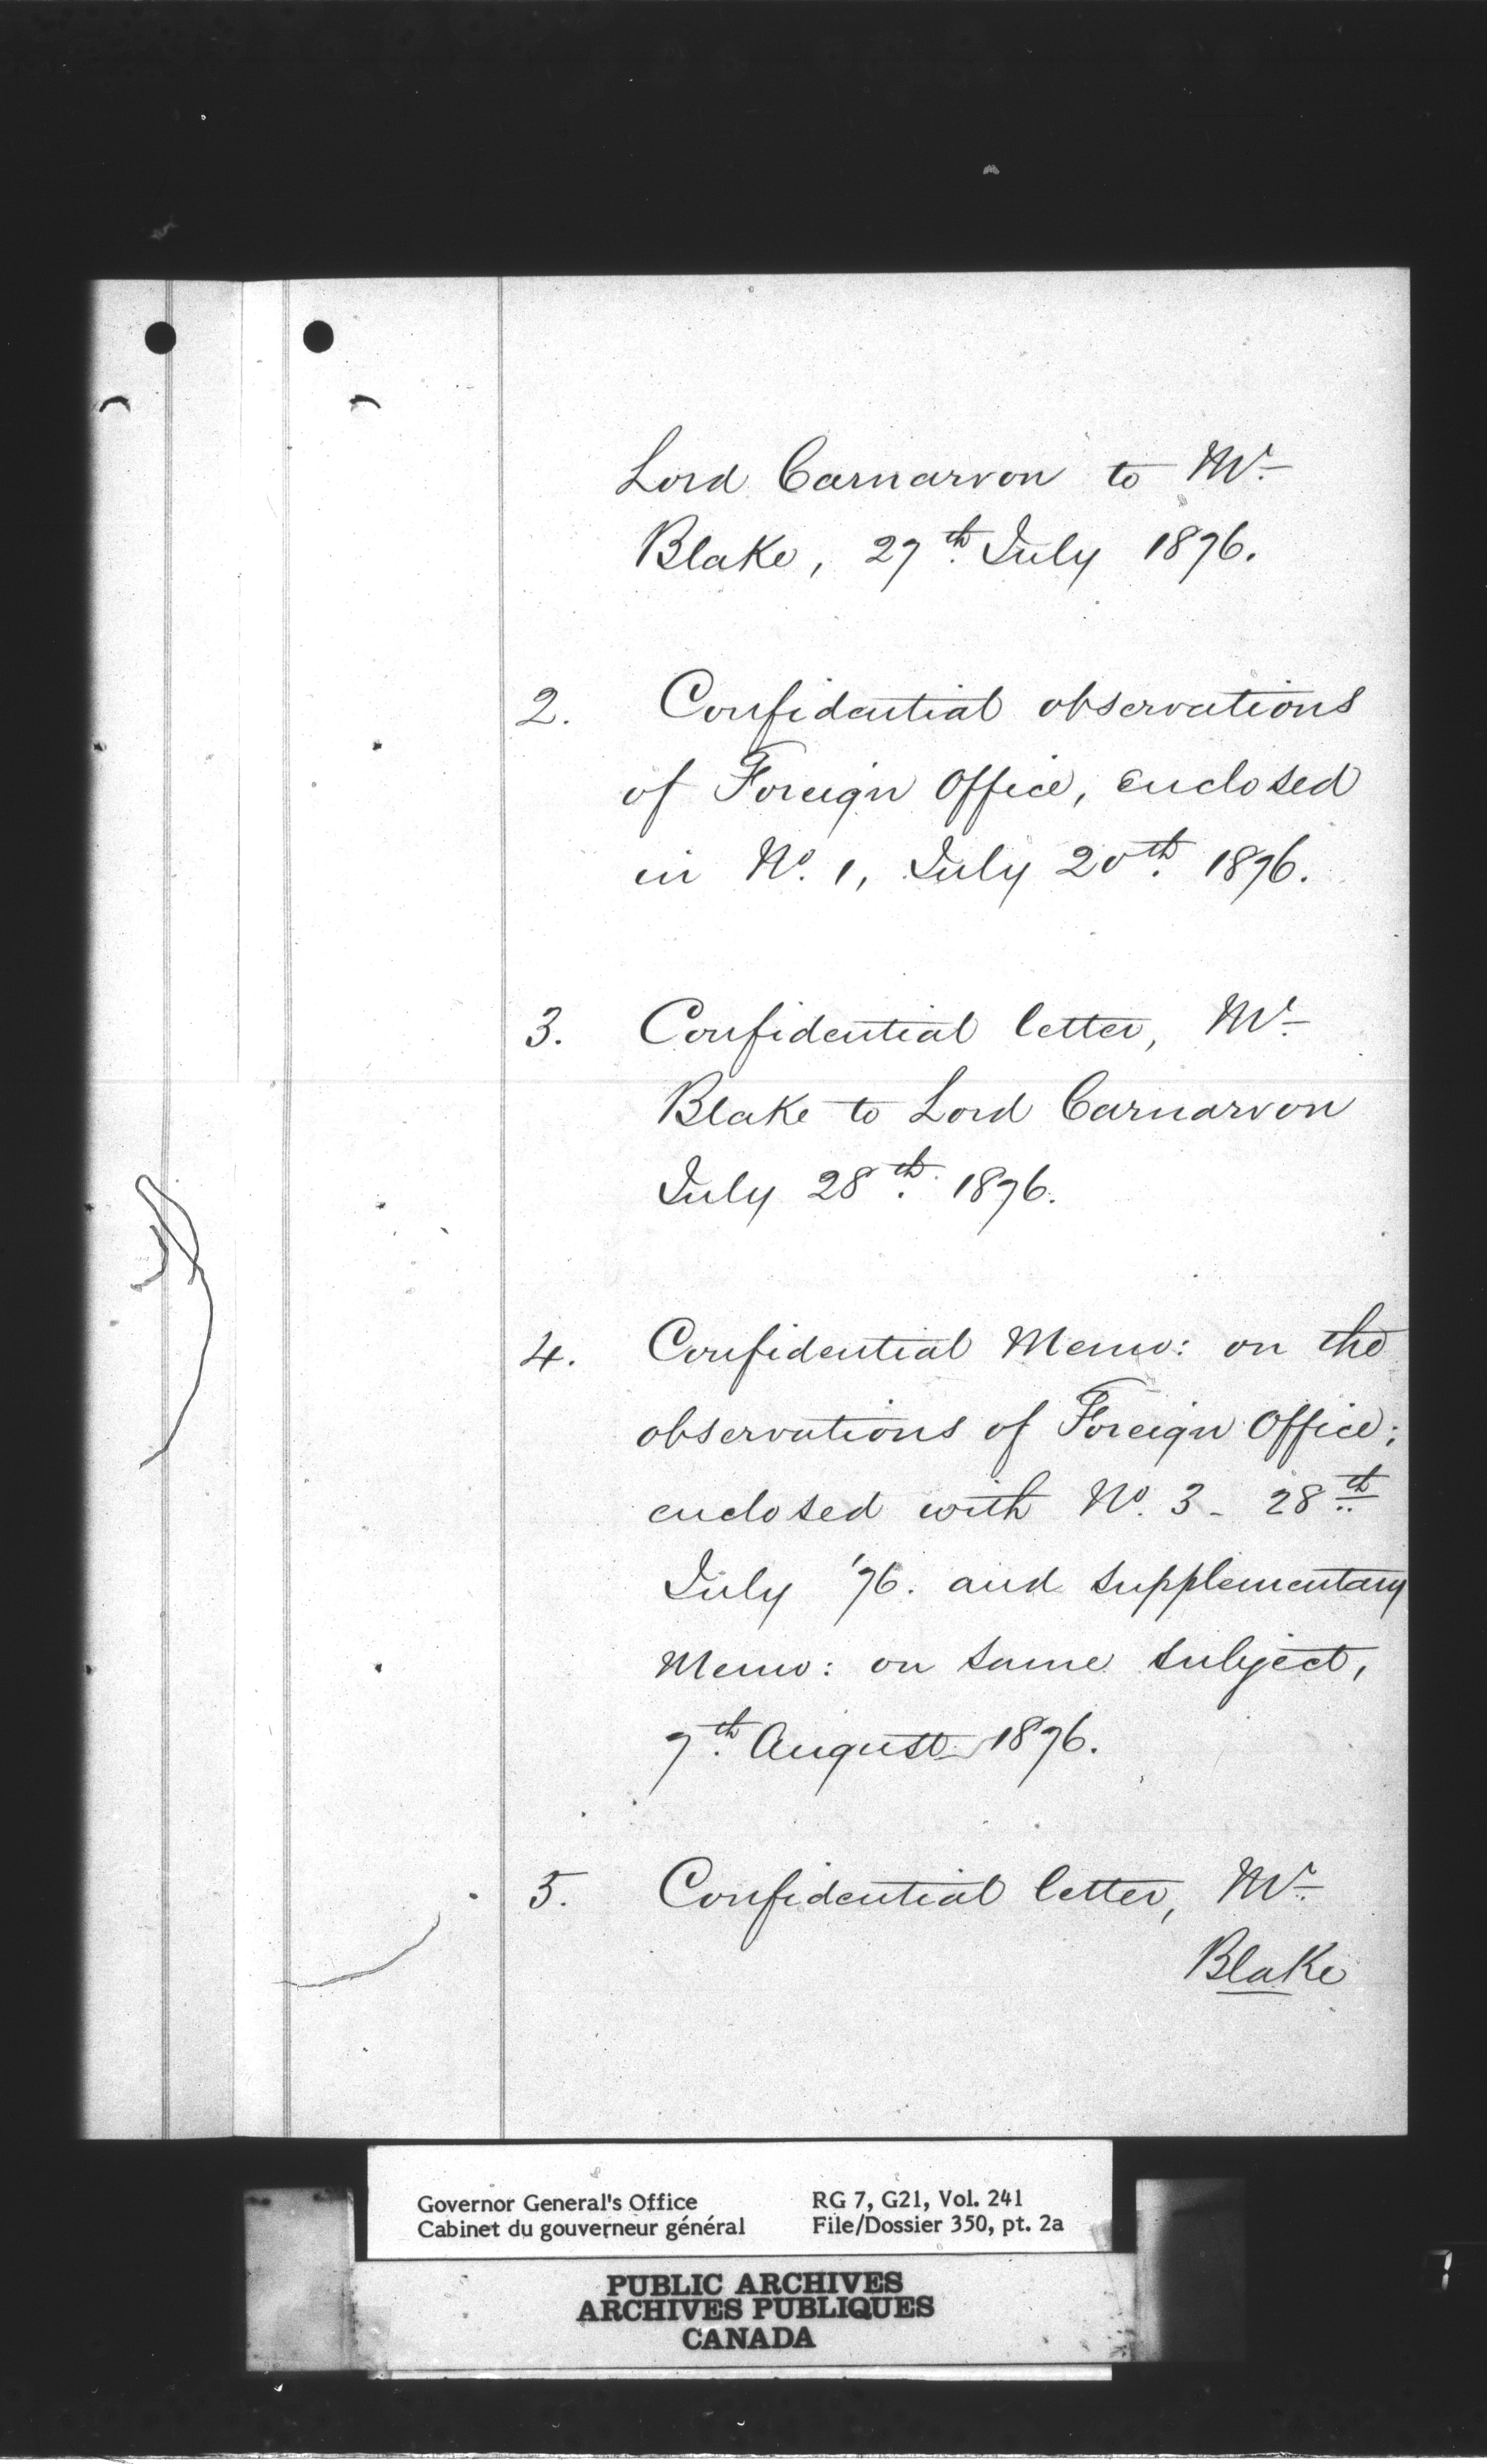 Lord Carnarvon to Mr.
Blake, 27th. July 1876.
2. Confidential observations
of Foreign Office, enclosed
in No. 1, July 20th. 1876.
3. Confidential letter, Mr.
Blake to Lord Carnarvon
July 28th. 1876.
4. Confidential Memo: on the
observations of Foreign Office;
enclosed with No. 3 - 28th
July '76. and supplementary
Memo: on same subject,
7th. August 1876.
5. Confidential letter, Mr.
Blake
Governor General's Office
Cabinet du gouverneur général
RG 7, G21, Vol. 241
File/Dossier 350, pt. 2a
PUBLIC ARCHIVES
ARCHIVES PUBLIQUES
CANADA